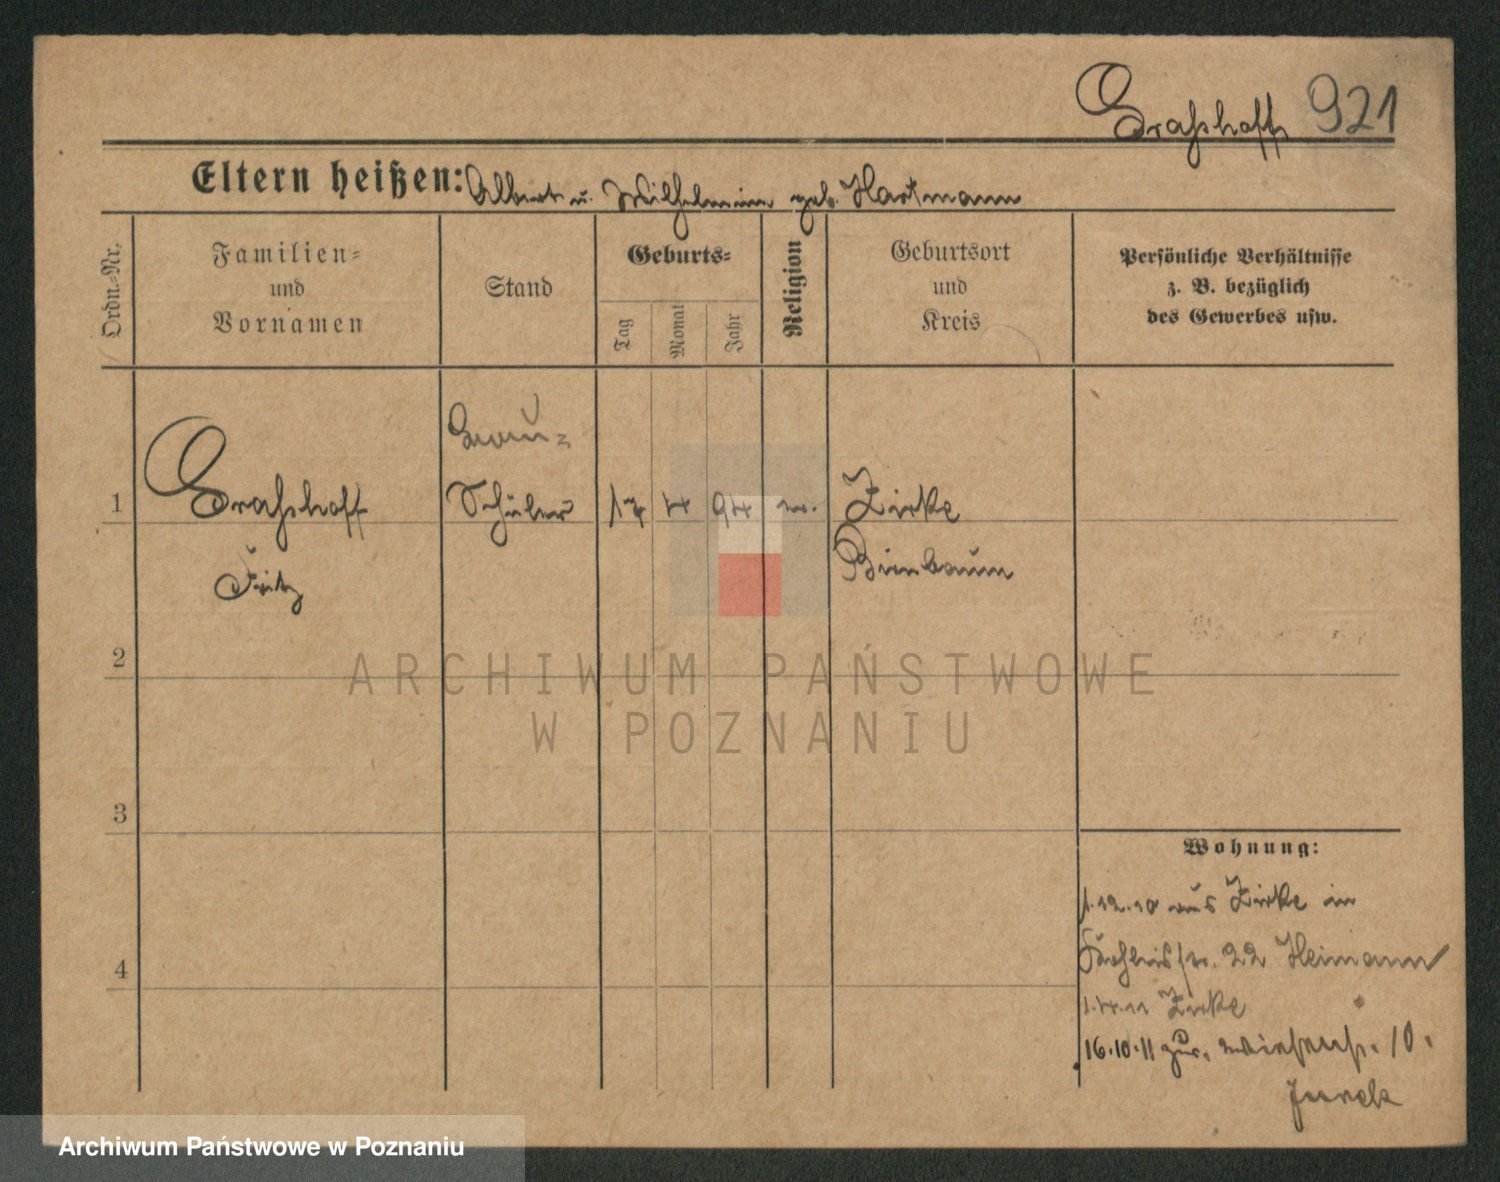 Graßhoff 921
Eltern heißen: Albert u. Wilhelmine geb. Hartmann
Ordn.-Nr.
Familien-
und
Vornamen
Stand
Geburts-
Tag
Monat
Jahr
Religion
Geburtsort
und
Kreis
Persönliche Verhältnisse
z. B. bezüglich
des Gewerbes usw.
1
Graßhoff
Fritz
Schüler
17
4
94
Zirke
Birnbaum
2
3
4
Wohnung:
1.12.10 aus Zirke in
22 Heimann
1.4.11 Zirke
16.10.11 zur. 10.
ARCHIWUM PAŃSTWOWE
W POZNANIU
Archiwum Państwowe w Poznaniu